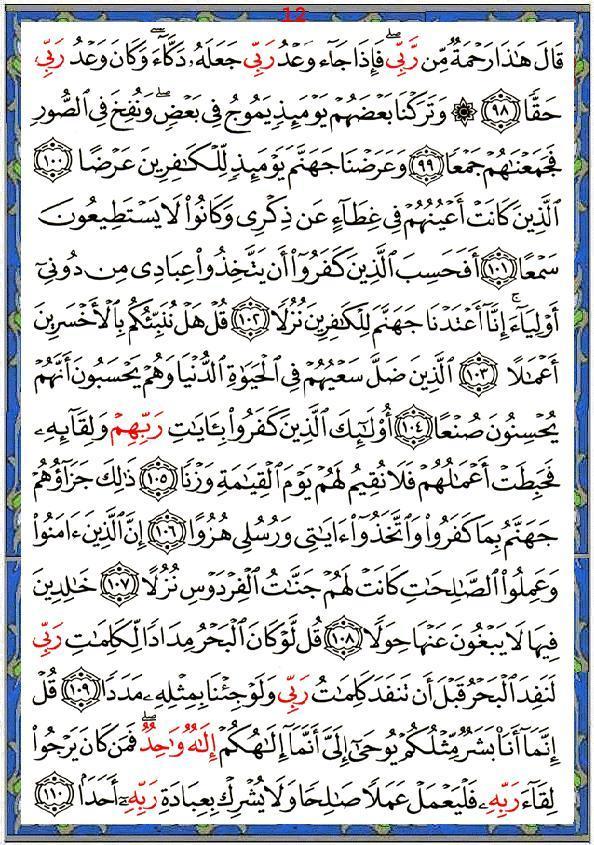 12
قَالَ هَٰذَا رَحْمَةٌ مِّن رَّبِّي ۖ فَإِذَا جَاءَ وَعْدُ رَبِّي جَعَلَهُۥ دَكَّاءَ ۖ وَكَانَ وَعْدُ رَبِّي
حَقًّا ﴿٩٨﴾ ۞ وَتَرَكْنَا بَعْضَهُمْ يَوْمَئِذٍ يَمُوجُ فِي بَعْضٍ ۖ وَنُفِخَ فِي ٱلصُّورِ
فَجَمَعْنَٰهُمْ جَمْعًا ﴿٩٩﴾ وَعَرَضْنَا جَهَنَّمَ يَوْمَئِذٍ لِّلْكَٰفِرِينَ عَرْضًا ﴿١٠٠﴾
ٱلَّذِينَ كَانَتْ أَعْيُنُهُمْ فِي غِطَآءٍ عَن ذِكْرِي وَكَانُوا۟ لَا يَسْتَطِيعُونَ
سَمْعًا ﴿١٠١﴾ أَفَحَسِبَ ٱلَّذِينَ كَفَرُوٓا۟ أَن يَتَّخِذُوا۟ عِبَادِي مِن دُونِيٓ
أَوْلِيَآءَ ۚ إِنَّآ أَعْتَدْنَا جَهَنَّمَ لِلْكَٰفِرِينَ نُزُلًا ﴿١٠٢﴾ قُلْ هَلْ نُنَبِّئُكُم بِٱلْأَخْسَرِينَ
أَعْمَٰلًا ﴿١٠٣﴾ ٱلَّذِينَ ضَلَّ سَعْيُهُمْ فِي ٱلْحَيَوٰةِ ٱلدُّنْيَا وَهُمْ يَحْسَبُونَ أَنَّهُمْ
يُحْسِنُونَ صُنْعًا ﴿١٠٤﴾ أُو۟لَٰٓئِكَ ٱلَّذِينَ كَفَرُوا۟ بِـَٔايَٰتِ رَبِّهِمْ وَلِقَآئِهِۦ
فَحَبِطَتْ أَعْمَٰلُهُمْ فَلَا نُقِيمُ لَهُمْ يَوْمَ ٱلْقِيَٰمَةِ وَزْنًا ﴿١٠٥﴾ ذَٰلِكَ جَزَآؤُهُمْ
جَهَنَّمُ بِمَا كَفَرُوا۟ وَٱتَّخَذُوٓا۟ ءَايَٰتِي وَرُسُلِي هُزُوًا ﴿١٠٦﴾ إِنَّ ٱلَّذِينَ ءَامَنُوا۟
وَعَمِلُوا۟ ٱلصَّٰلِحَٰتِ كَانَتْ لَهُمْ جَنَّٰتُ ٱلْفِرْدَوْسِ نُزُلًا ﴿١٠٧﴾ خَٰلِدِينَ
فِيهَا لَا يَبْغُونَ عَنْهَا حِوَلًا ﴿١٠٨﴾ قُل لَّوْ كَانَ ٱلْبَحْرُ مِدَادًا لِّكَلِمَٰتِ رَبِّي
لَنَفِدَ ٱلْبَحْرُ قَبْلَ أَن تَنفَدَ كَلِمَٰتُ رَبِّي وَلَوْ جِئْنَا بِمِثْلِهِۦ مَدَدًا ﴿١٠٩﴾ قُلْ
إِنَّمَآ أَنَا۠ بَشَرٌ مِّثْلُكُمْ يُوحَىٰٓ إِلَيَّ أَنَّمَآ إِلَٰهُكُمْ إِلَٰهٌ وَٰحِدٌ ۖ فَمَن كَانَ يَرْجُوا۟
لِقَآءَ رَبِّهِۦ فَلْيَعْمَلْ عَمَلًا صَٰلِحًا وَلَا يُشْرِكْ بِعِبَادَةِ رَبِّهِۦٓ أَحَدًۢا ﴿١١٠﴾